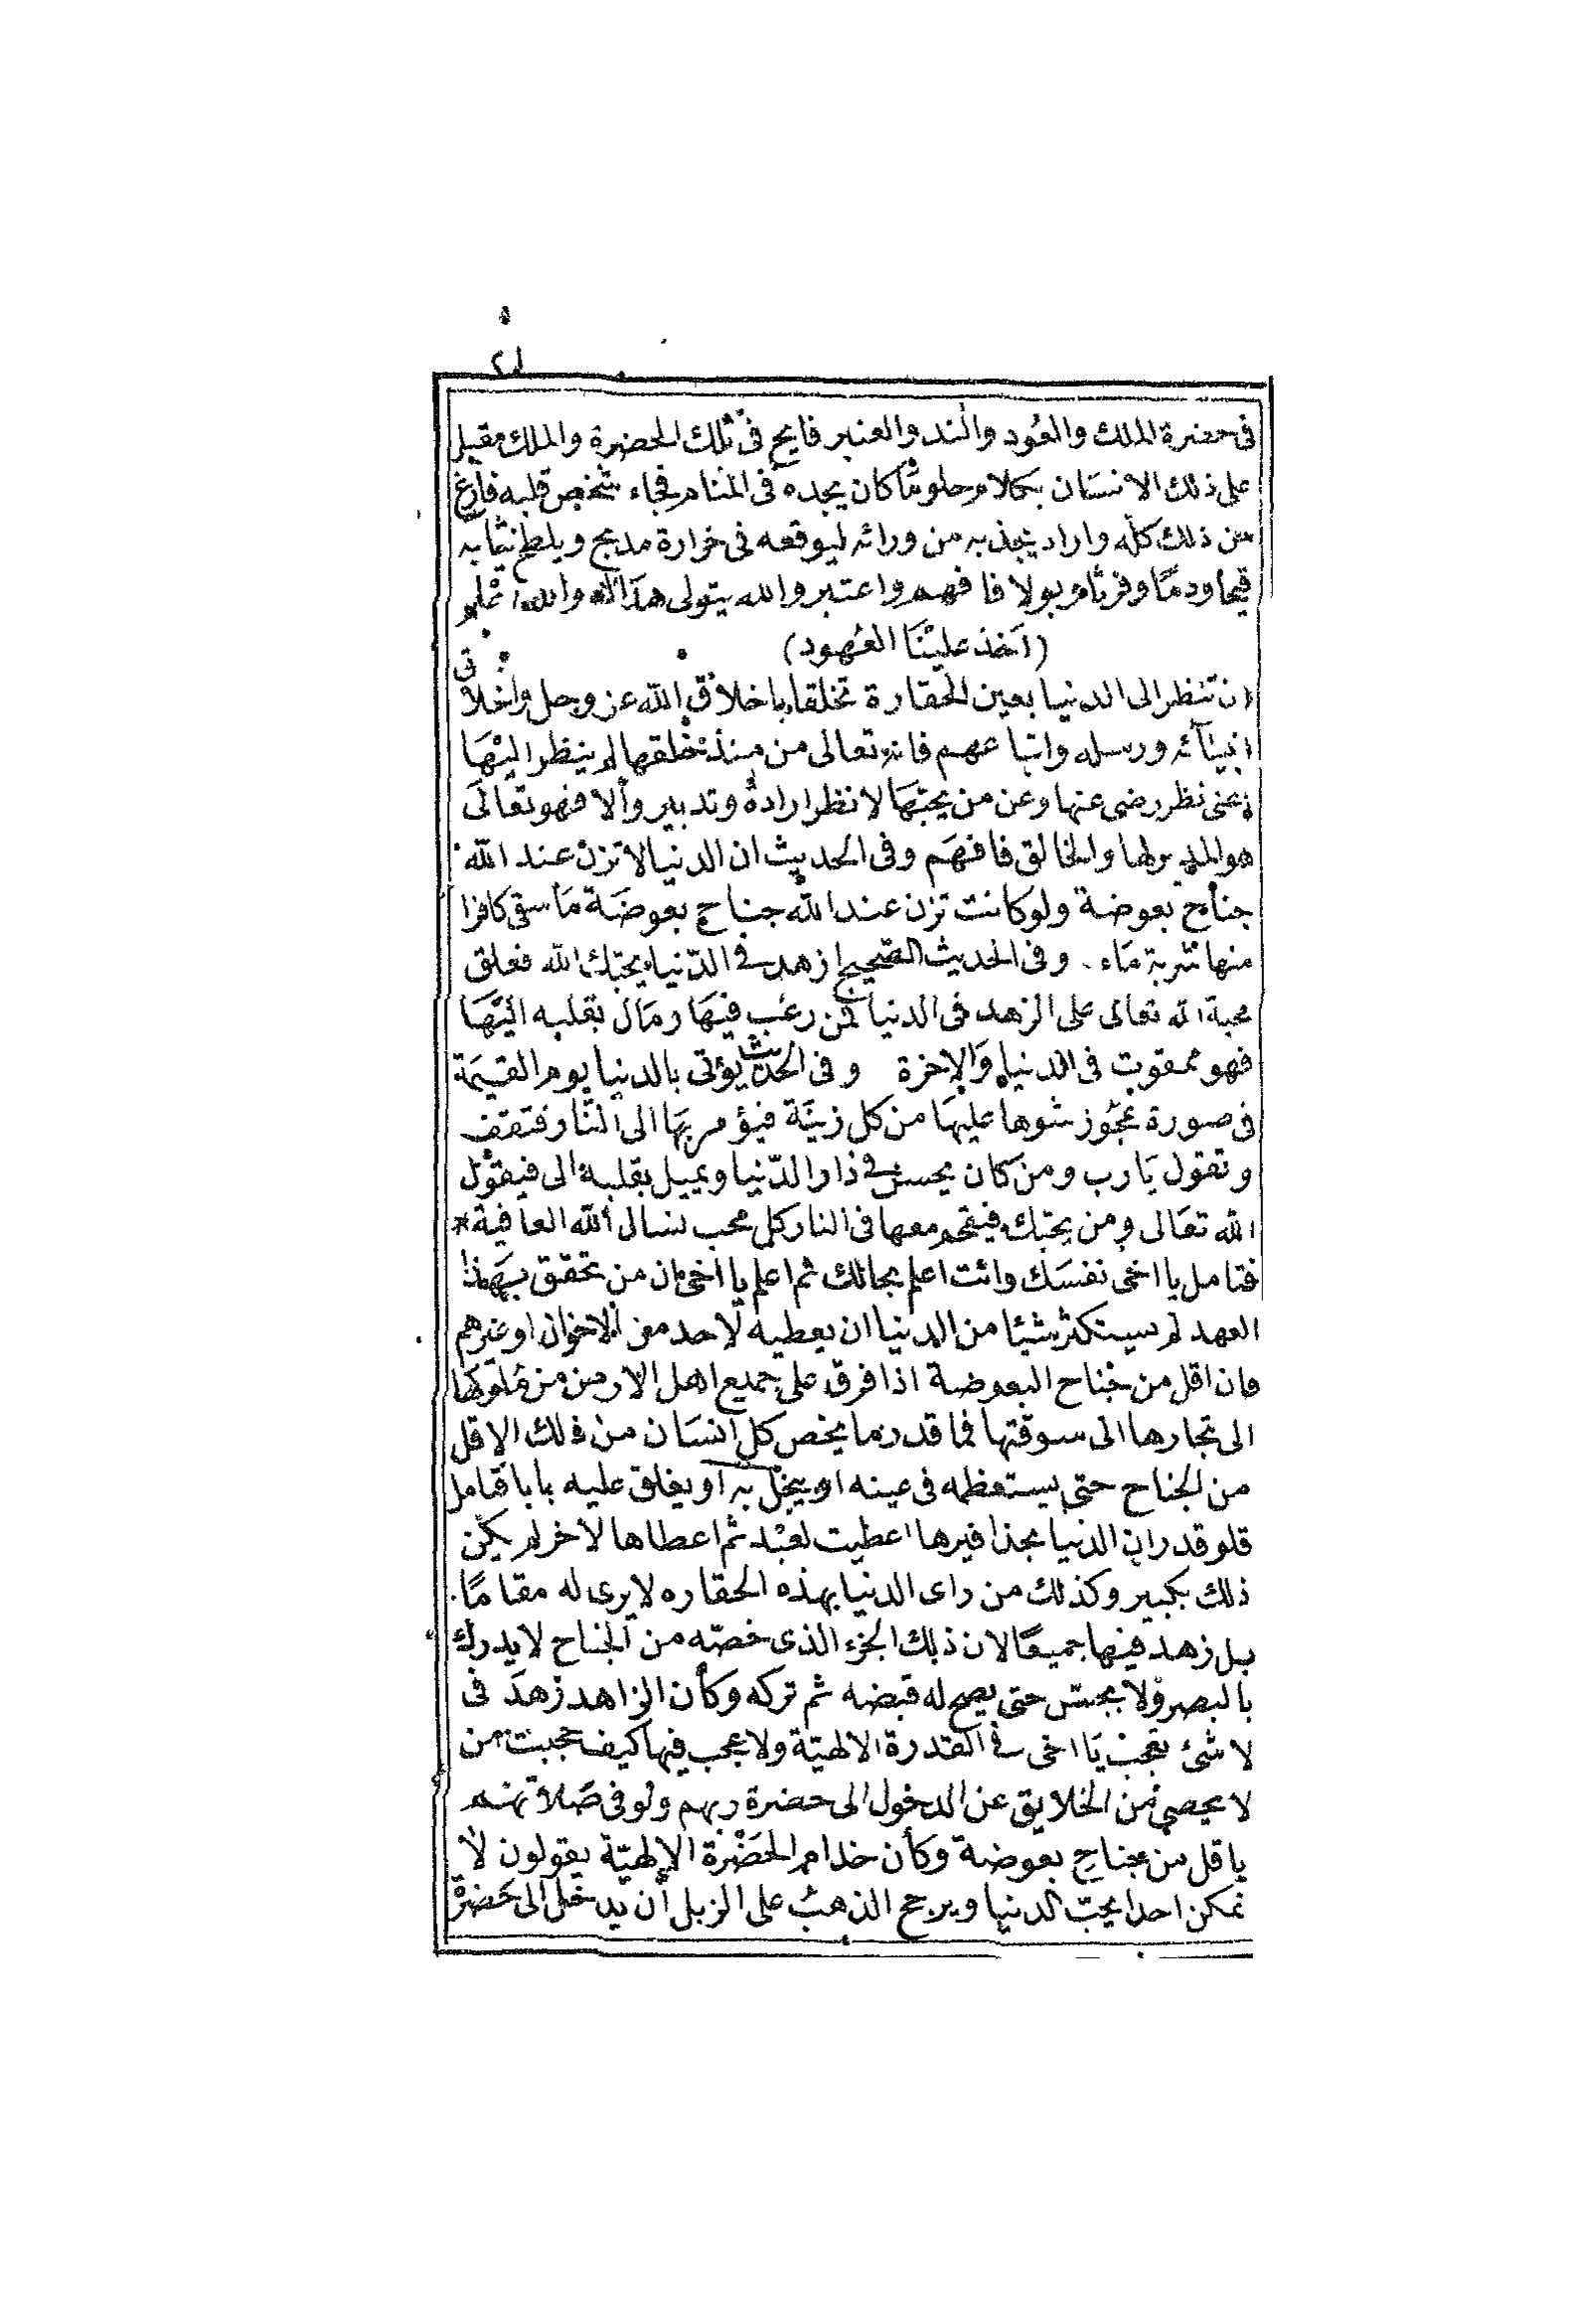 فى حضرة الملك والعُود والند والعنبر فايح فى تلك الحضرة والملك مقبل
على ذلك الانسَان بكلام حلو ما كان يجده فى المنام فجاء شخص قلبه فارغ
من ذلك كله واراد يجذبه من ورائه ليوقعه فى خرارة مذبح ويلطخ ثيابه
قيحا ودمًا وفرثا وبولا فافهم واعتبر والله يتولى هداك والله اعلم
(اخذ علينَا العُهود)
ان تنظر الى الدنيا بعين الحقارة تخلقا باخلاق الله عز وجل واخلاق
انبيآئه ورسله واتباعهم فانه تعالى من منذ خلقها لم ينظر اليْهَا
يعنى نظر رضى عنها وعن من يحبّهَا لا نظر ارادة وتدبير والا فهو تعَالَى
هو المدبر لها والخالق فافهَم وفى الحديث ان الدنيا لا تزن عند الله
جناح بعوضة ولو كانت تزن عند الله جناح بعوضَة مَا سقى كافرا
منها شربة مَاء . وفى الحديث الصّحيح ازهد فى الدّنيا يحبّك الله فعلق
محبة الله تعالى على الزهد فى الدنيا فمن رغب فيهَا ومَال بقلبه اليْهَا
فهو ممقوت فى الدنيا وَالاخرة وفى الحديث يؤتى بالدنيا يوم القيمَة
فى صورة عجُوز شوها عليهَا من كل زينَة فيؤمر بهَا الى النّار فتقف
وتقول يَا رب ومن كان يحسن فى دار الدّنيا ويميل بقلبه الى فيقوْل
الله تعَالى ومن يحبّك فيقحم معها فى النار كل محب نسال الله العافية *
فتامل يا اخى نفسَك وانت اعلم بحالك ثم اعلم يا اخى ان من تحقق بهَذا
العهد لم يستكثر شيئا من الدنيا ان يعطيه لاحد من الاخوان او غيرهم
فان اقل من جناح البعوضة اذا فرق على جميع اهل الارض من مُلوكها
الى تجارها الى سوقتها فما قدر ما يخص كل انسَان من ذلك الاقل
من الجناح حتى يستعظمه فى عينه او يبخل به او يغلق عليه بابا فتامل
فلو قدر ان الدنيا بحذافيرها اعطيت لعبْد ثم اعطاها لاخر لم يكن
ذلك بكبير وكذلك من راى الدنيا بهذه الحقاره لا يرى له مقامًا
بل زهد فيها جميعًا لان ذلك الجزء الذى خصّه من الجناح لا يدرك
بالبصر ولا يحسّ حتى يصح له قبضه ثم تركه وكأن الزاهد زهَد فى
لا شئ فتعجب يَا اخى فى القدرة الالهيّة ولا عجب فيها كيف حجبت من
لا يحصى من الخلايق عن الدخول الى حضرة ربهم ولو فى صَلاتهم
باقل من جناح بعوضة وكأن خدام الحَضْرة الالهيّة يقولون لا
نمكن احدا يحبّ الدنيا ويرجح الذهبُ على الزبل ان يدخل الى حَضرة